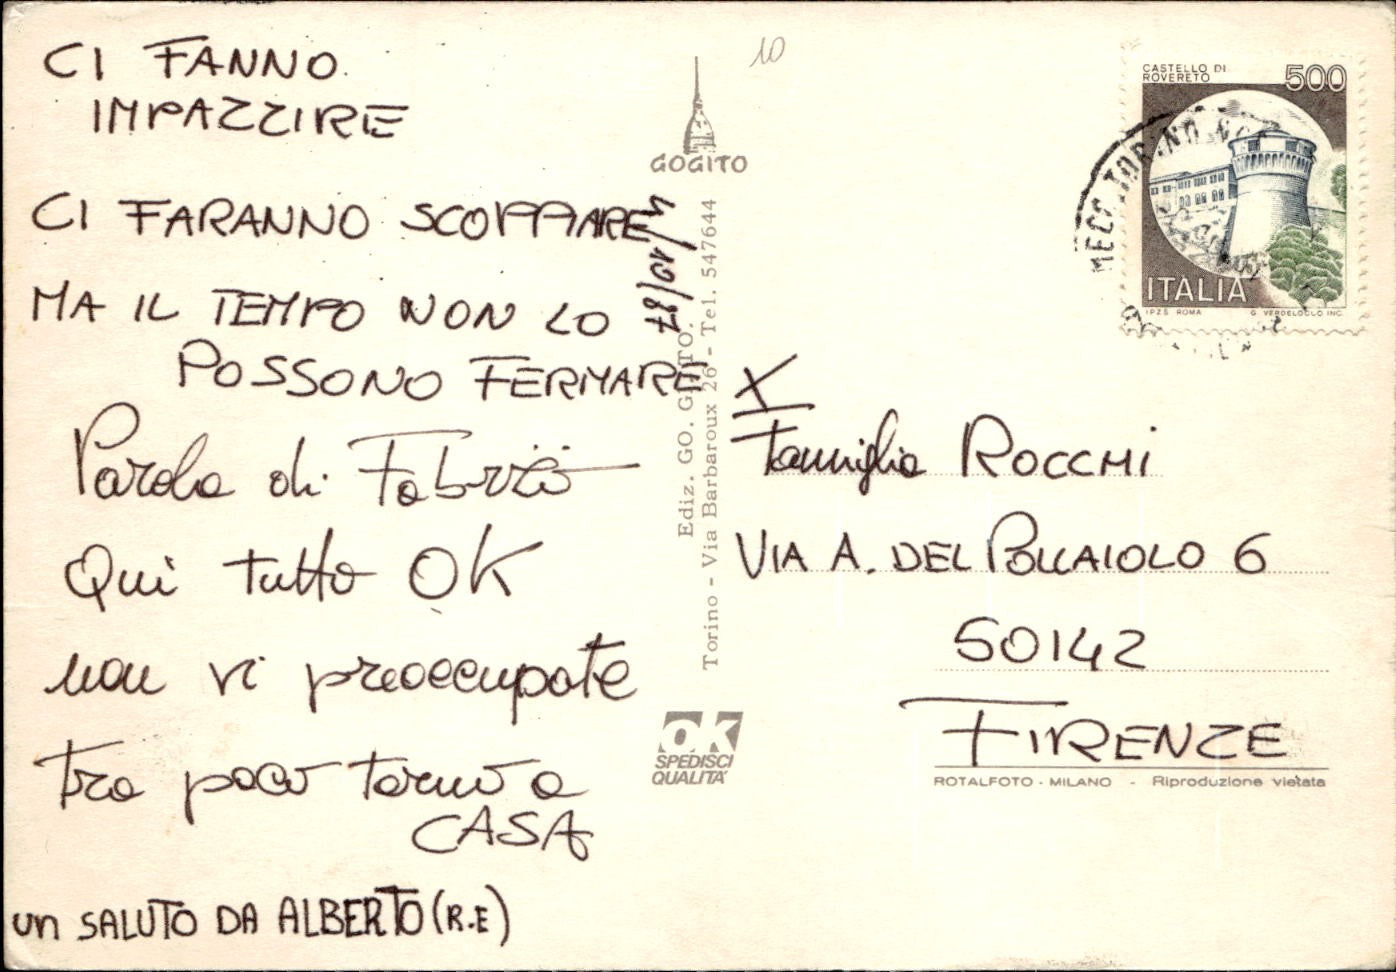 CI FANNO
IMPAZZIRE
CI FARANNO SCOPPIARE
MA IL TEMPO NON LO
POSSONO FERMARE
Parola di Fabrizio
Qui tutto OK
non vi preoccupate
tra poco torno a
CASA
un SALUTO DA ALBERTO (R.E)
10
GOGITO
Ediz. GO. GI. TO.
Torino - Via Barbaroux 26 - Tel. 547644
OK
SPEDISCI
QUALITA'
CASTELLO DI
ROVERETO
500
ITALIA
I.P.Z.S. ROMA G. VERDELOCCO INC.
MECC TORINO
X
Famiglia ROCCHI
VIA A. DEL POLLAIOLO 6
50142
FIRENZE
ROTALFOTO - MILANO - Riproduzione vietata